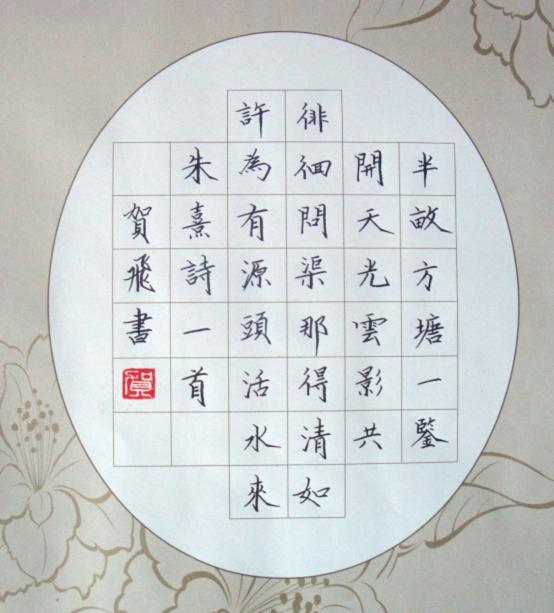 半畝方塘一鑒
開天光雲影共
徘徊問渠那得清如
許為有源頭活水來
朱熹詩一首
賀飛書
賀